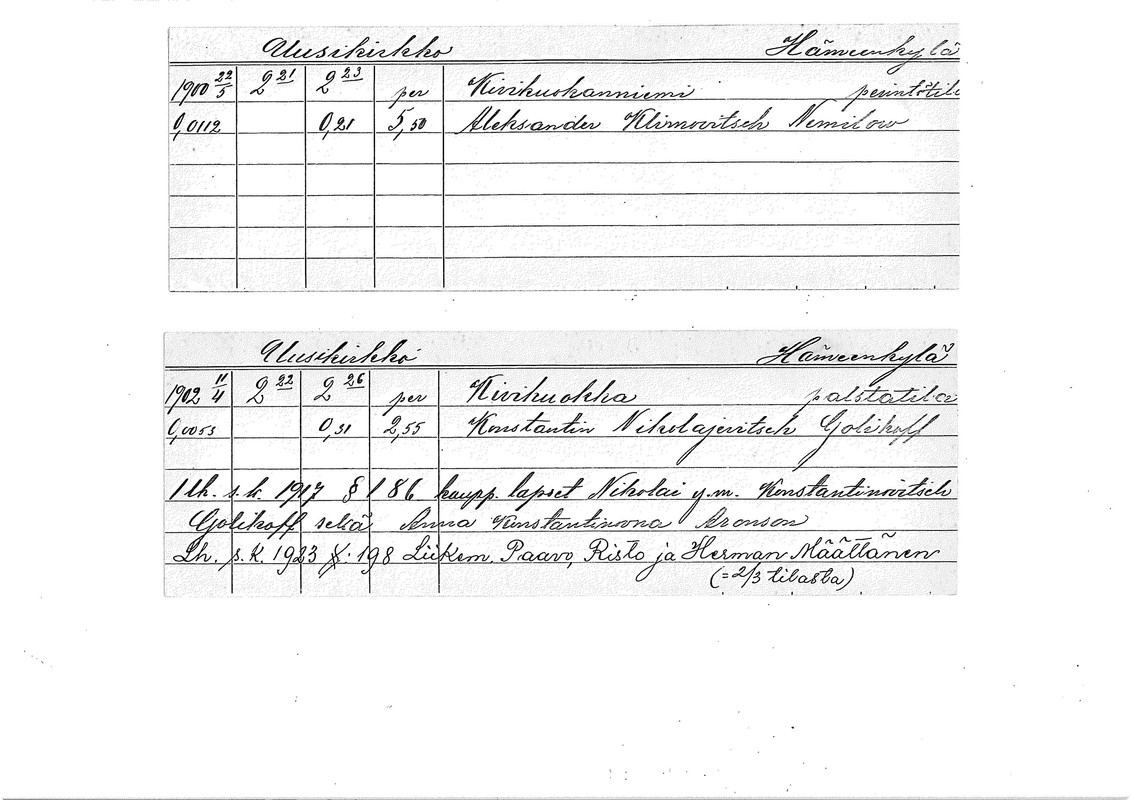 Uusikirkko Hämeenkylä
1900 22/5 2 21 2 23 per Kivikuokanniemi perintötila
0,0112 0,21 5,50 Aleksander Klimovitsch Nemilow
Uusikirkko Hämeenkylä
1902 11/4 2 22 2 26 per Kivikuokka palstatila
0,0053 0,31 2,55 Konstantin Nikolajevitsch Golikoff
1 lh. s.k. 1917 § 186 kaupp. lapset Nikolai y.m. Konstantinovitsch
Golikoff sekä Anna Konstantinovna Aronson
Lh. s.k. 1923 §: 198 Liikem. Paavo, Risto ja Herman Määttänen
(= 2/3 tilasta)